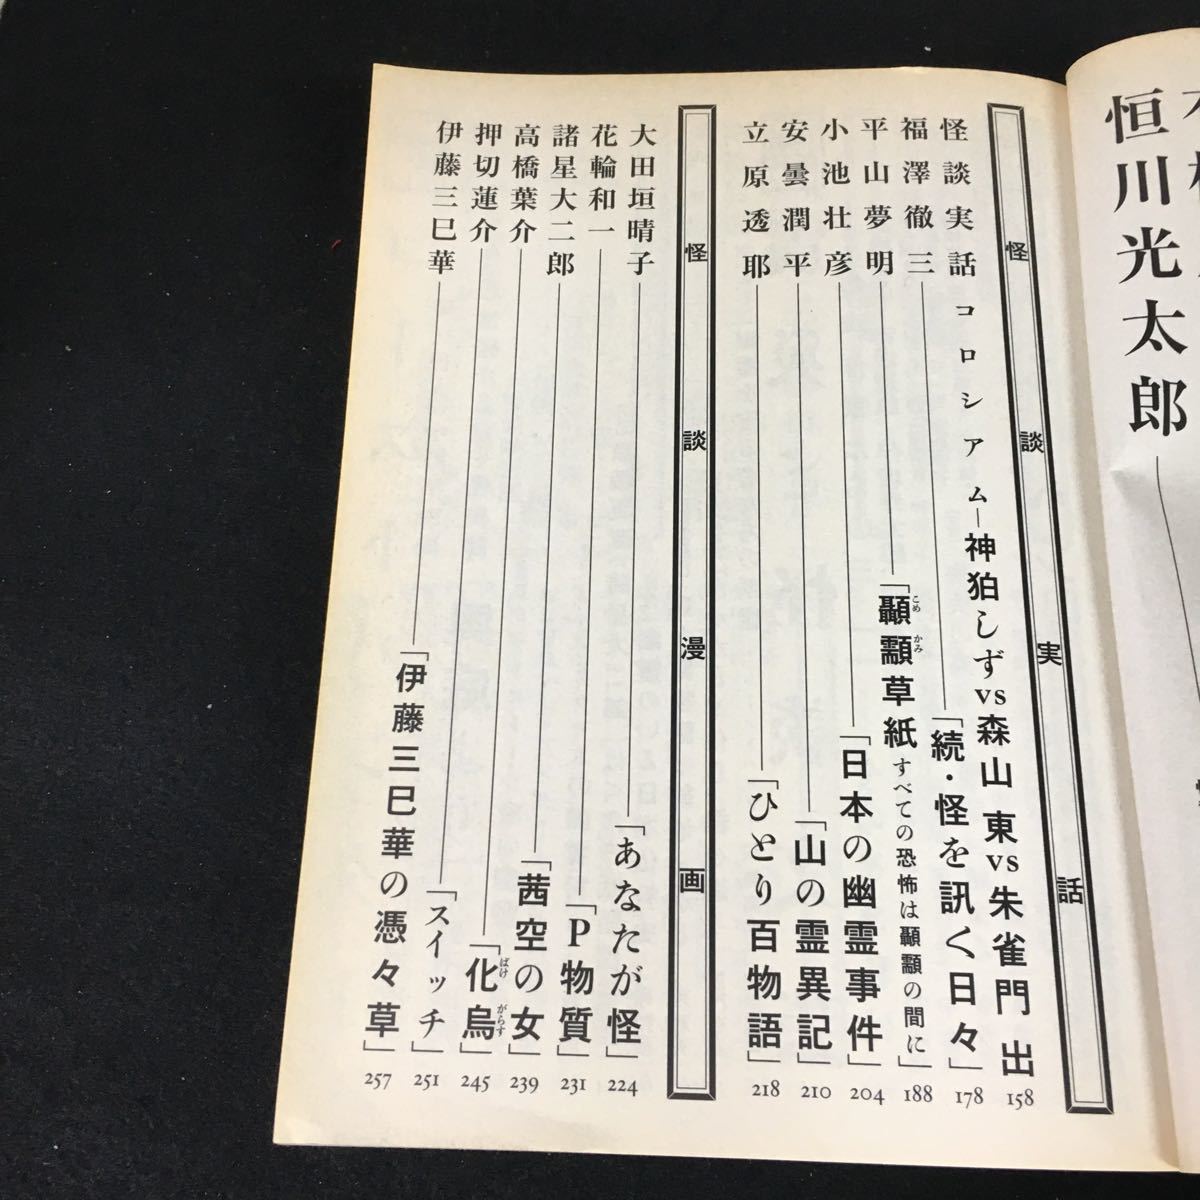 恒川光太郎
怪談実話
怪談実話コロシアム―神狛しずvs森山東vs朱雀門出 158
福澤徹三 「続・怪を訊く日々」 178
平山夢明 「顳顬草紙 すべての恐怖は顳顬の間に」 188
こめ かみ
小池壮彦 「日本の幽霊事件」 204
安曇潤平 「山の霊異記」 210
立原透耶 「ひとり百物語」 218
怪談漫画
大田垣晴子 「あなたが怪」 224
花輪和一 「P物質」 231
諸星大二郎 「茜空の女」 239
高橋葉介 「化烏」 245
ばけ がらす
押切蓮介 「スイッチ」 251
伊藤三巳華 「伊藤三巳華の憑々草」 257